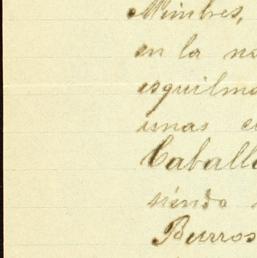 Mimbres,
en la na
esquilma
unas c
Caballe
siendo
Burros